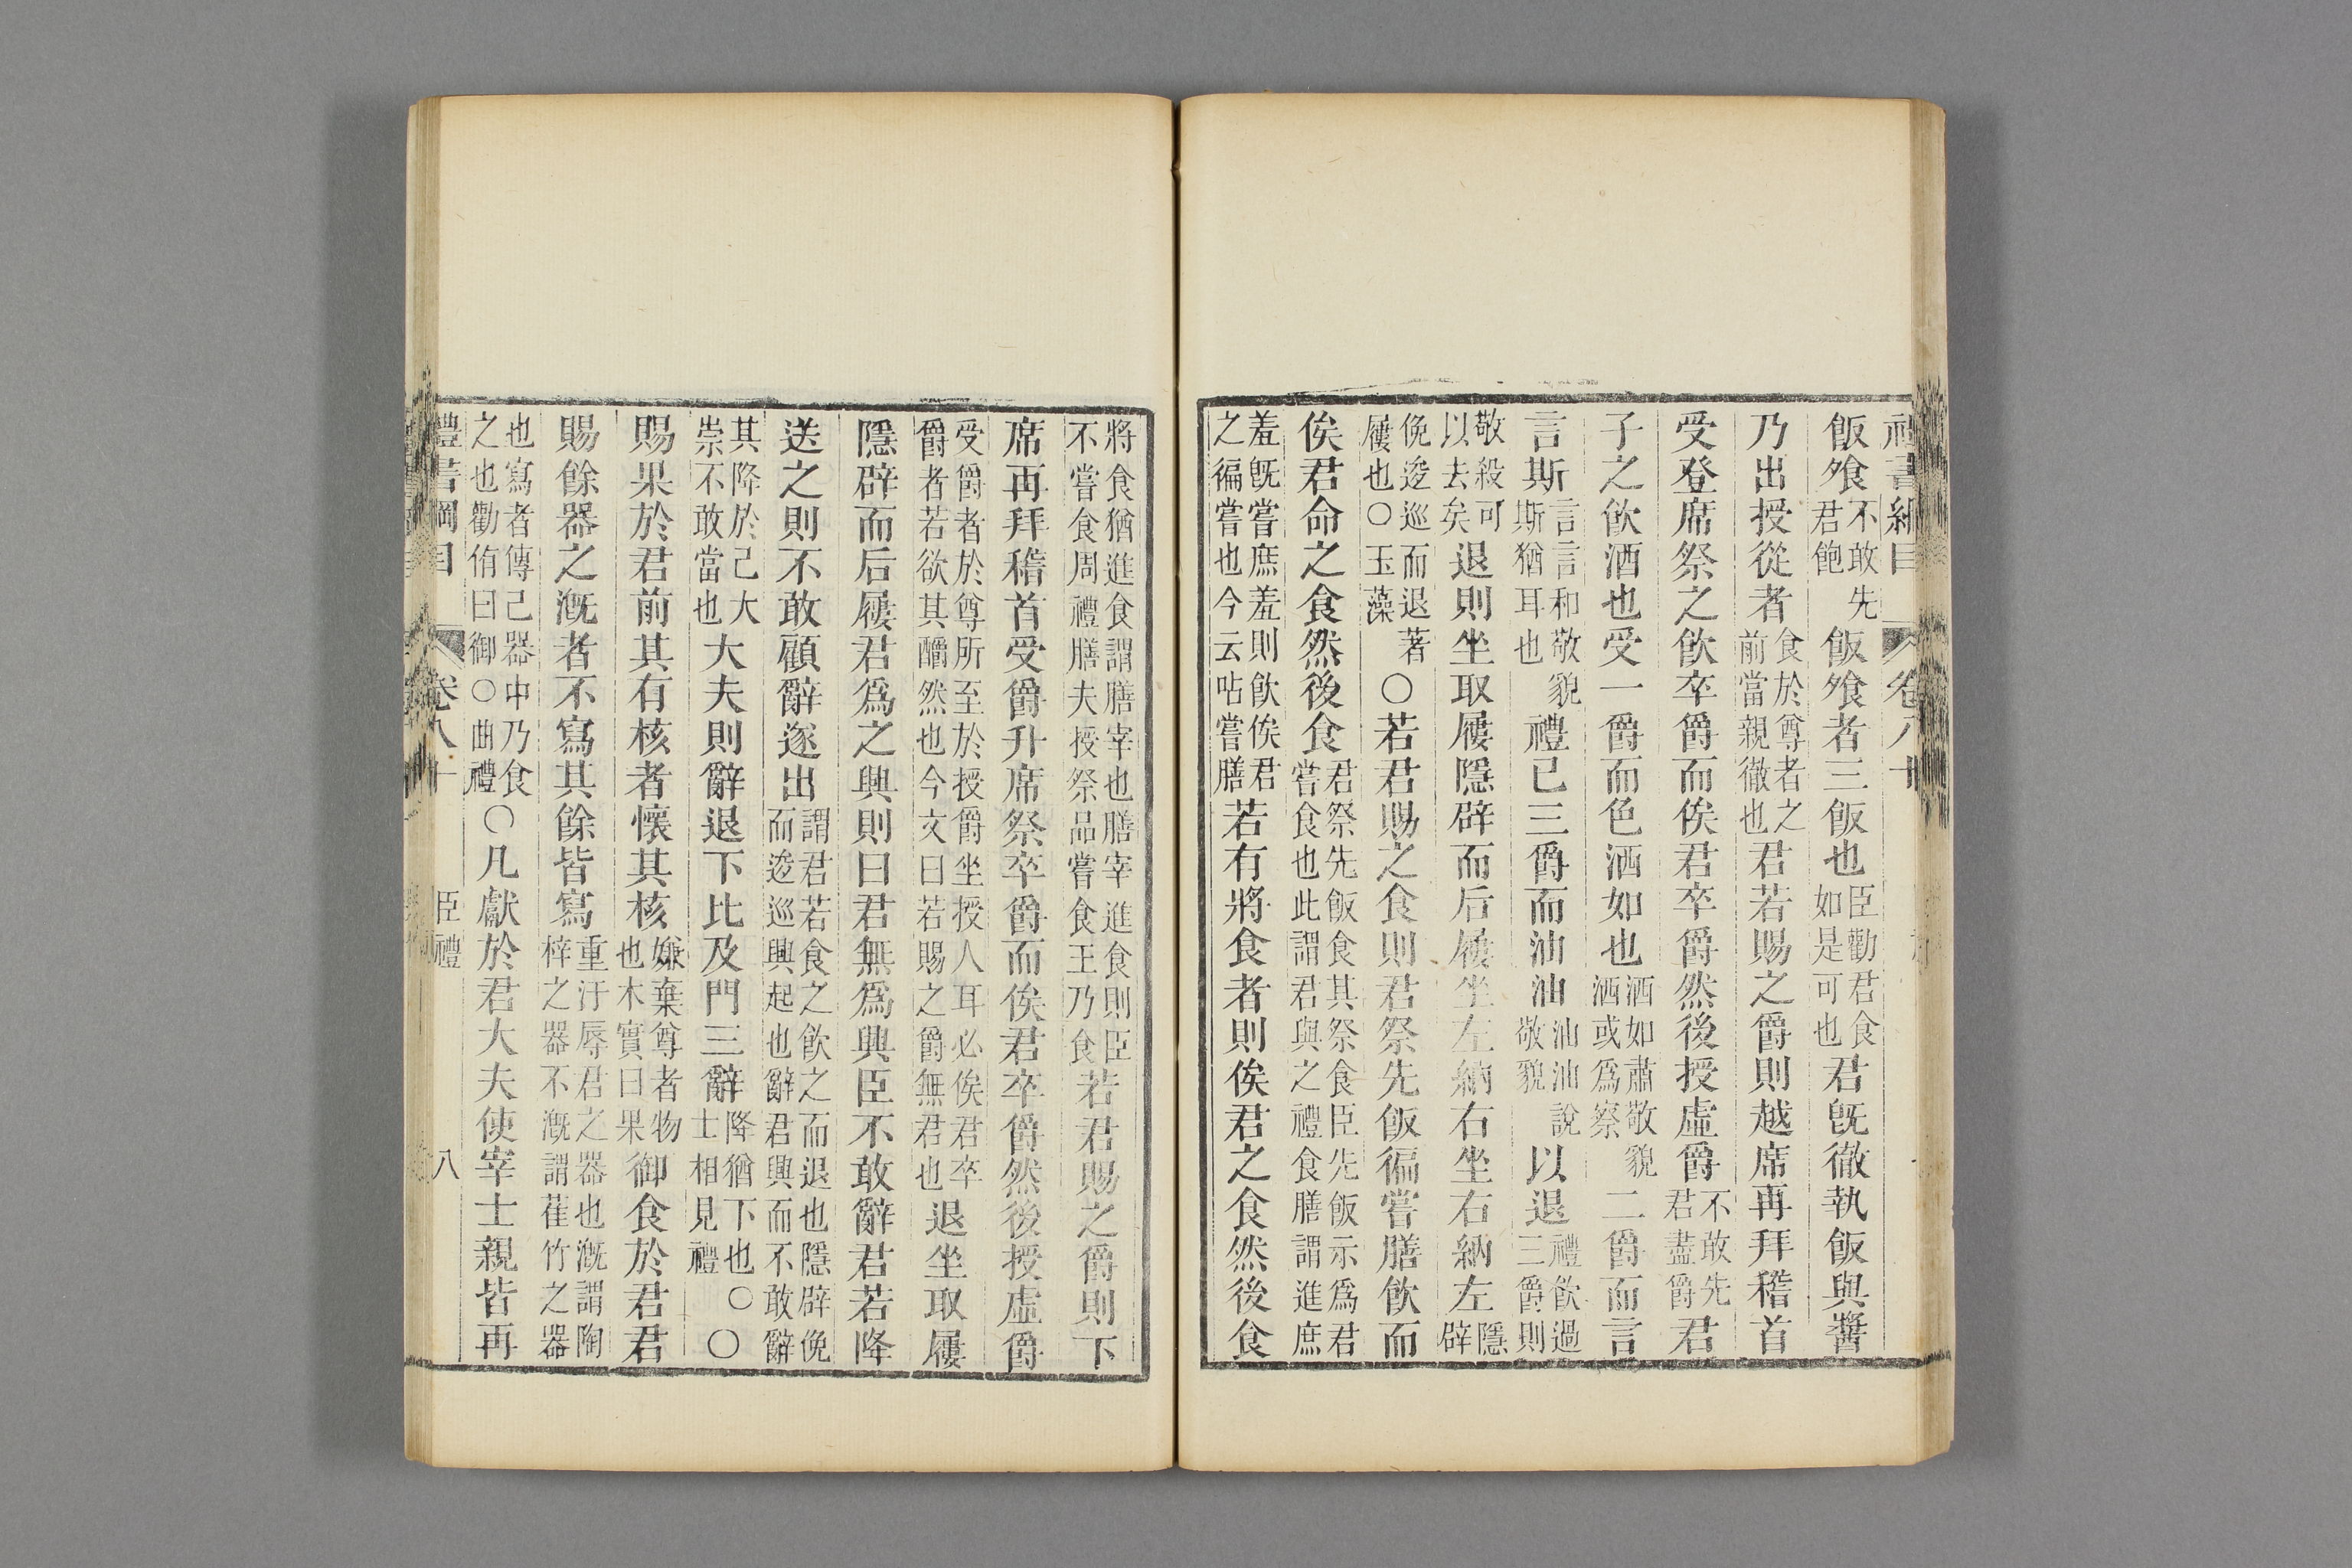 禮書綱目 卷八十
飯飱不敢先君飽飯飱者三飯也臣勸君食如是可也君旣徹執飯與醬
乃出授從者食於尊者之前當親徹也君若賜之爵則越席再拜稽首
受登席祭之飮卒爵而俟君卒爵然後授虛爵不敢先君盡爵君
子之飮酒也受一爵而色洒如也洒如肅敬貌洒或爲察二爵而言
言斯言言和敬貌斯猶耳也禮已三爵而油油油油說敬貌以退禮飮過三爵則
敬殺可以去矣退則坐取屨隱辟而后屨坐左納右坐右納左隱辟
俛逡巡而退著屨也○玉藻○若君賜之食則君祭先飯徧嘗膳飮而
俟君命之食然後食君祭先飯食其祭食臣先飯示爲君嘗食也此謂君與之禮食膳謂進庶
羞旣嘗庶羞則飮俟君之徧嘗也今云呫嘗膳若有將食者則俟君之食然後食
將食猶進食謂膳宰也膳宰進食則臣不嘗食周禮膳夫授祭品嘗食王乃食若君賜之爵則下
席再拜稽首受爵升席祭卒爵而俟君卒爵然後授虛爵
受爵者於尊所至於授爵坐授人耳必俟君卒爵者若欲其釂然也今文曰若賜之爵無君也退坐取屨
隱辟而后屨君爲之興則曰君無爲興臣不敢辭君若降
送之則不敢顧辭遂出謂君若食之飮之而退也隱辟俛而逡巡興起也辭君興而不敢辭
其降於己大崇不敢當也大夫則辭退下比及門三辭降猶下也○士相見禮○
賜果於君前其有核者懷其核嫌棄尊者物也木實曰果御食於君君
賜餘器之漑者不寫其餘皆寫重汙辱君之器也漑謂陶梓之器不漑謂萑竹之器
也寫者傳己器中乃食之也勸侑曰御○曲禮○凡獻於君大夫使宰士親皆再
禮書綱目 卷八十 臣禮 八